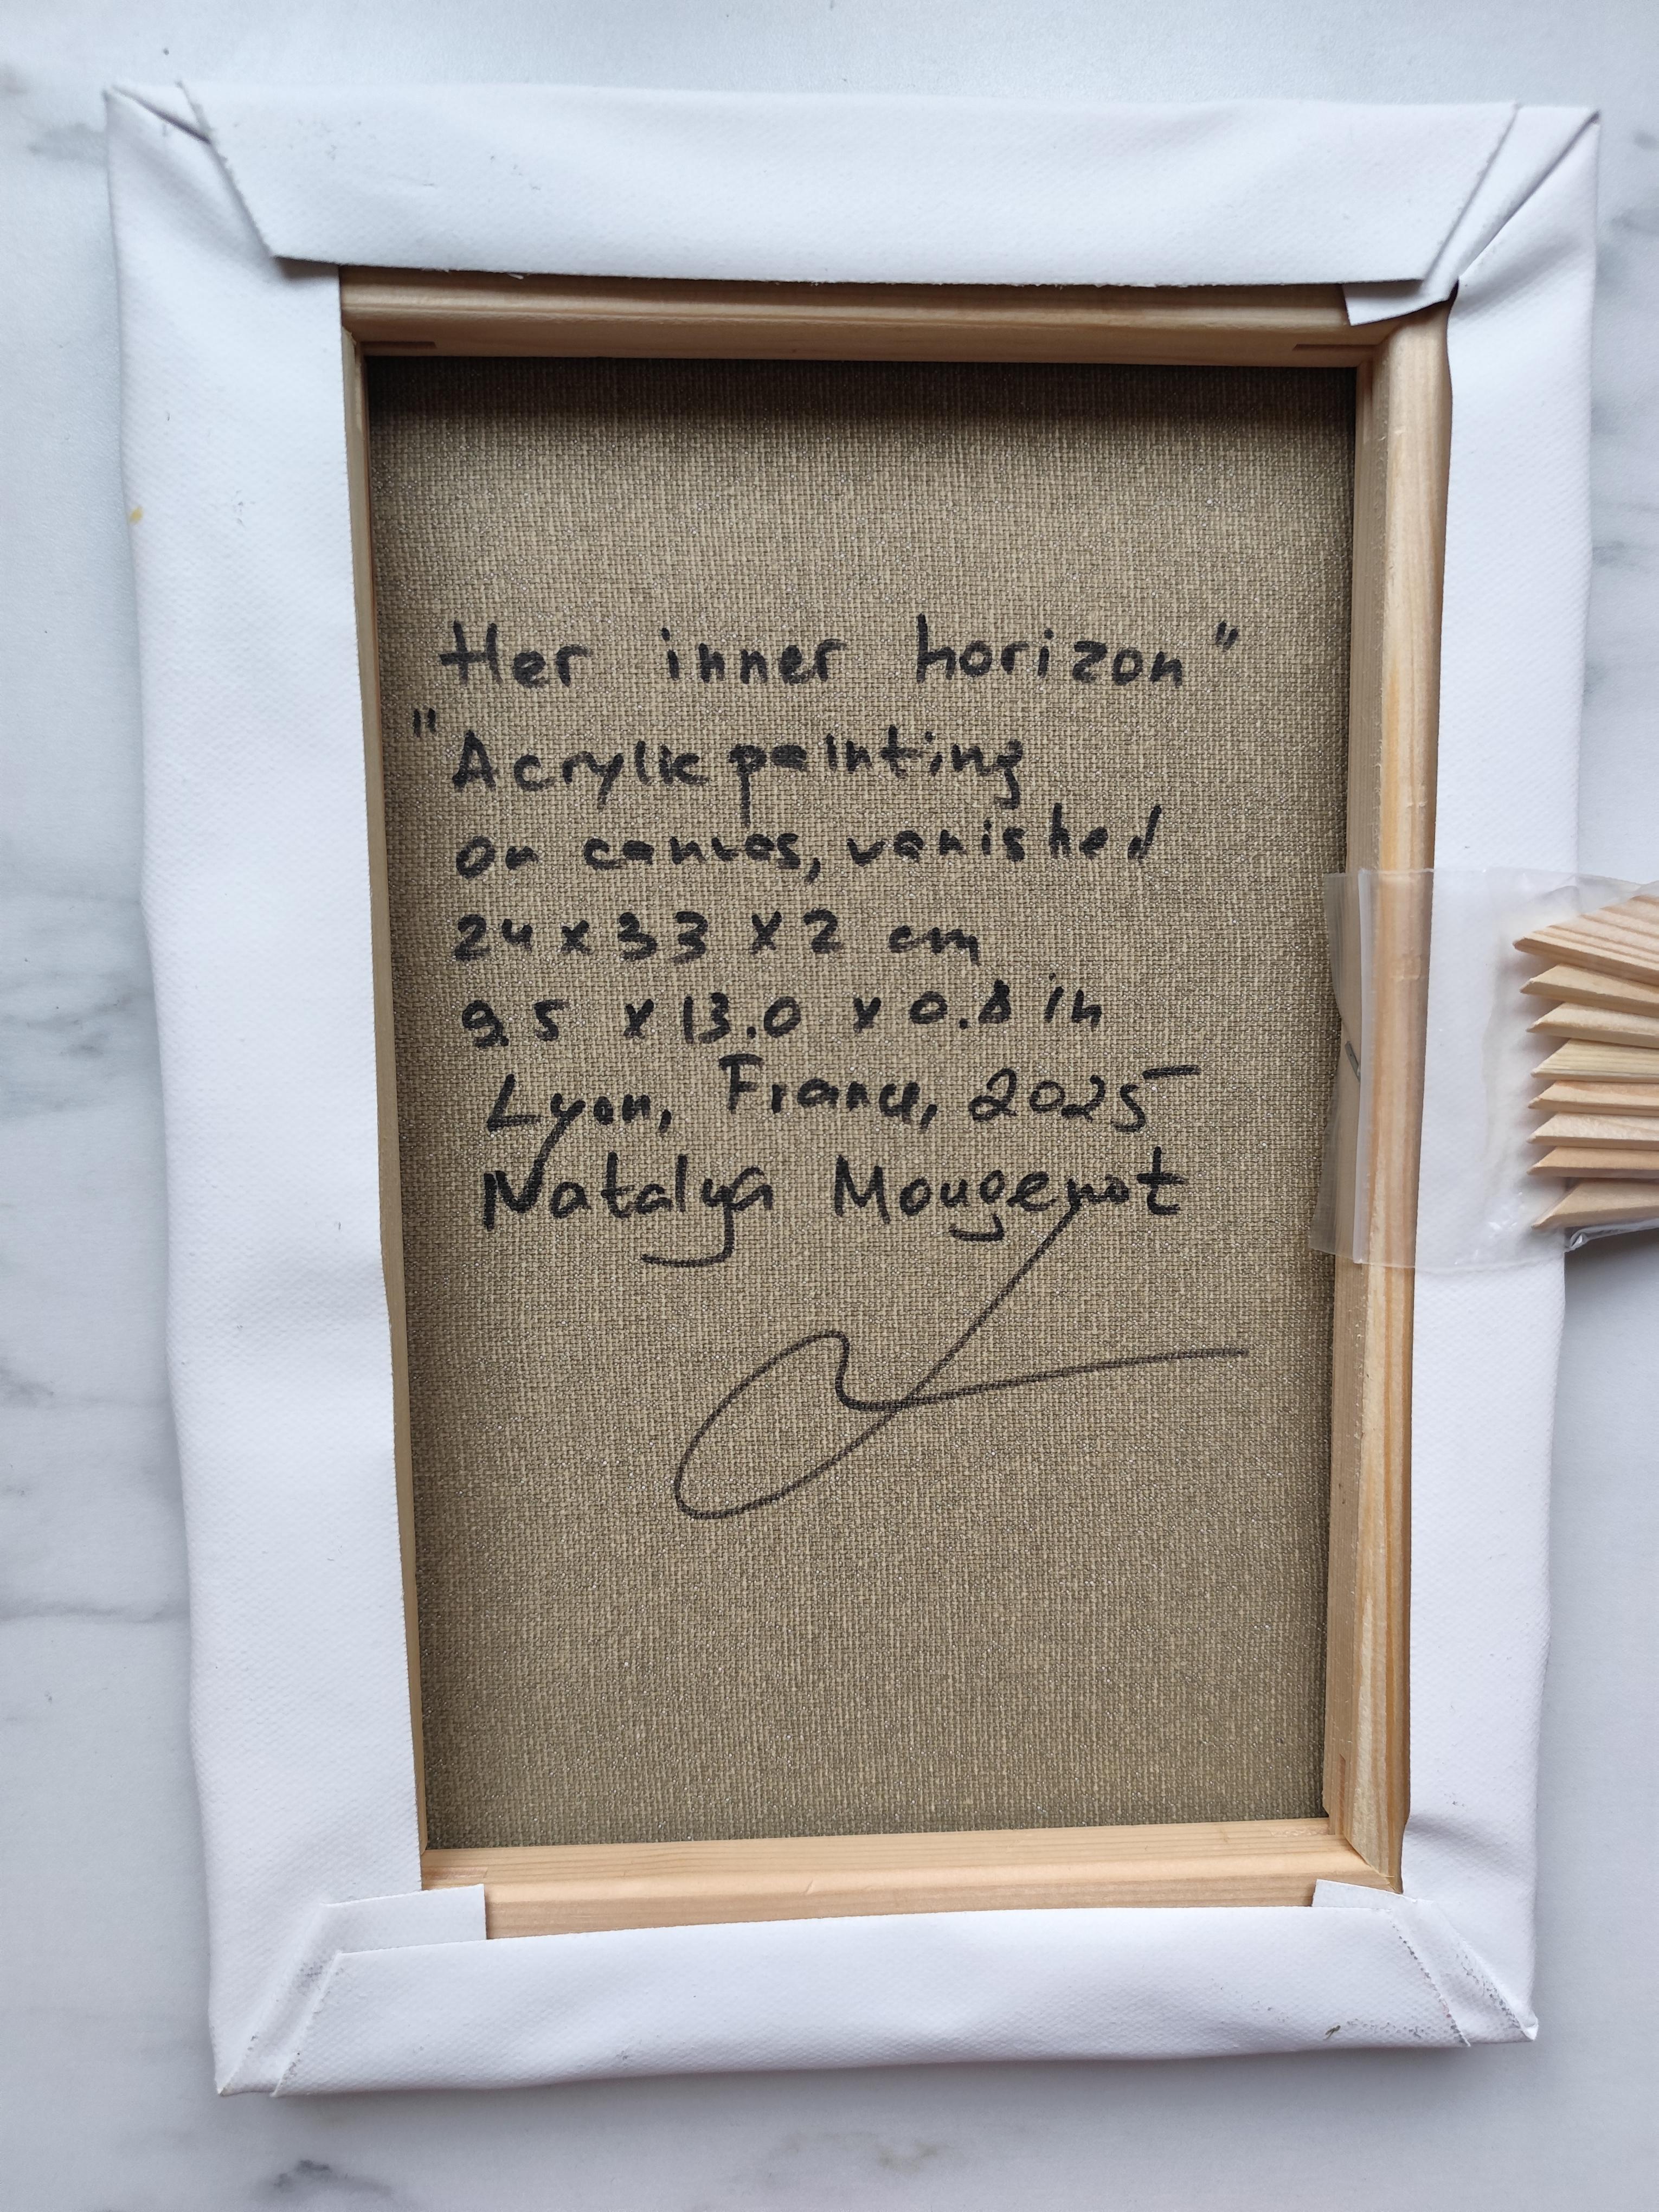 Her inner horizon"
"Acrylic painting
on canvas, vanished
24 x 33 x 2 cm
9.5 x 13.0 x 0.8 in
Lyon, France, 2025
Natalya Mougenot